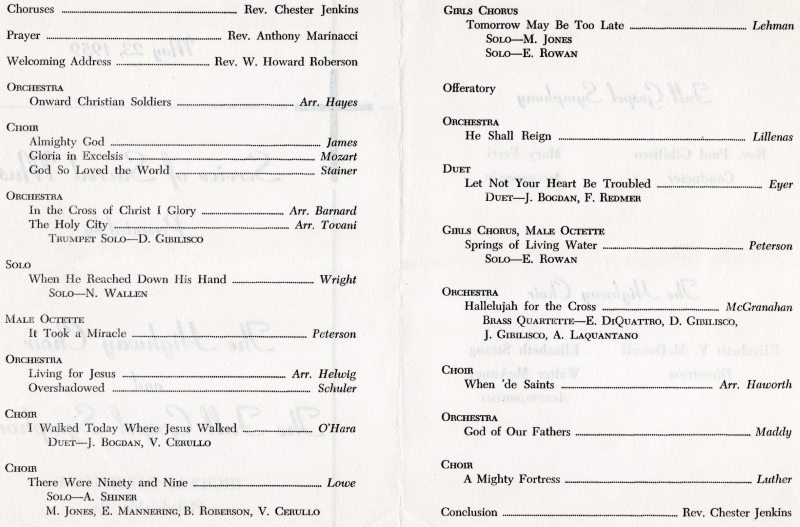 Choruses Rev. Chester Jenkins
Prayer Rev. Anthony Marinacci
Welcoming Address Rev. W. Howard Roberson
Orchestra
Onward Christian Soldiers Arr. Hayes
Choir
Almighty God James
Gloria in Excelsis Mozart
God So Loved the World Stainer
Orchestra
In the Cross of Christ I Glory Arr. Barnard
The Holy City Arr. Tovani
Trumpet Solo—D. Gibilisco
Solo
When He Reached Down His Hand Wright
Solo—N. Wallen
Male Octette
It Took a Miracle Peterson
Orchestra
Living for Jesus Arr. Helwig
Overshadowed Schuler
Choir
I Walked Today Where Jesus Walked O'Hara
Duet—J. Bogdan, V. Cerullo
Choir
There Were Ninety and Nine Lowe
Solo—A. Shiner
M. Jones, E. Mannering, B. Roberson, V. Cerullo
Girls Chorus
Tomorrow May Be Too Late Lehman
Solo—M. Jones
Solo—E. Rowan
Offeratory
Orchestra
He Shall Reign Lillenas
Duet
Let Not Your Heart Be Troubled Eyer
Duet—J. Bogdan, F. Redmer
Girls Chorus, Male Octette
Springs of Living Water Peterson
Solo—E. Rowan
Orchestra
Hallelujah for the Cross McGranahan
Brass Quartette—E. DiQuattro, D. Gibilisco,
J. Gibilisco, A. Laquantano
Choir
When 'de Saints Arr. Haworth
Orchestra
God of Our Fathers Maddy
Choir
A Mighty Fortress Luther
Conclusion Rev. Chester Jenkins